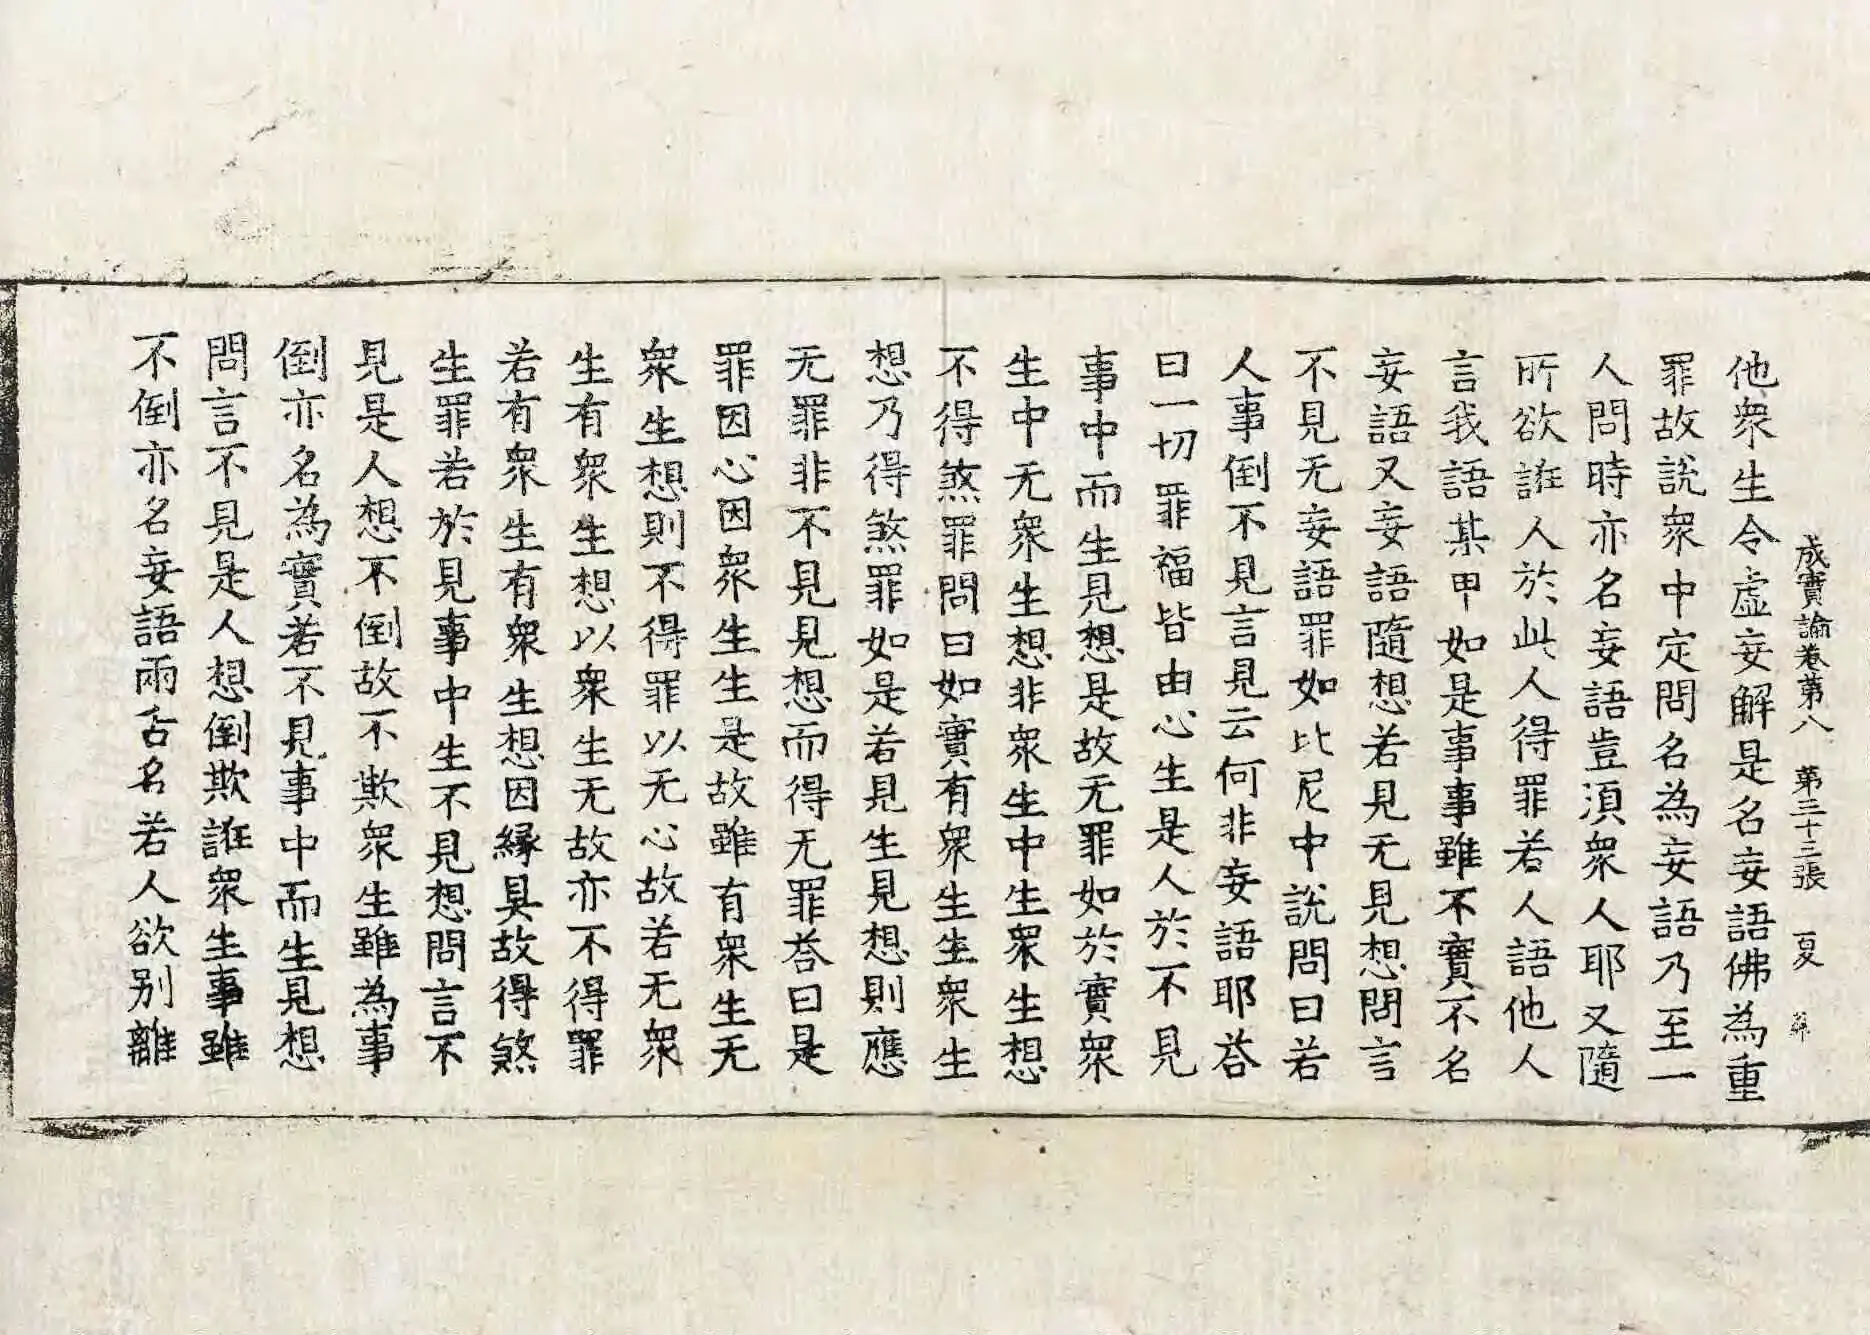 成實論卷第八 第三十三張 夏
他衆生令虛妄解是名妄語佛為重
罪故說衆中定問名為妄語乃至一
人問時亦名妄語豈湏衆人耶又隨
所欲誑人於此人得罪若人語他人
言我語某甲如是事事雖不實不名
妄語又妄語隨想若見无見想問言
不見无妄語罪如比尼中說問曰若
人事倒不見言見云何非妄語耶荅
曰一切罪福皆由心生是人於不見
事中而生見想是故无罪如於實衆
生中无衆生想非衆生中生衆生想
不得煞罪問曰如實有衆生生衆生
想乃得煞罪如是若見生見想則應
无罪非不見見想而得无罪荅曰是
罪因心因衆生生是故雖有衆生无
衆生想則不得罪以无心故若无衆
生有衆生想以衆生无故亦不得罪
若有衆生有衆生想因緣具故得煞
生罪若於見事中生不見想問言不
見是人想不倒故不欺衆生雖為事
倒亦名為實若不見事中而生見想
問言不見是人想倒欺誑衆生事雖
不倒亦名妄語兩舌名若人欲别離